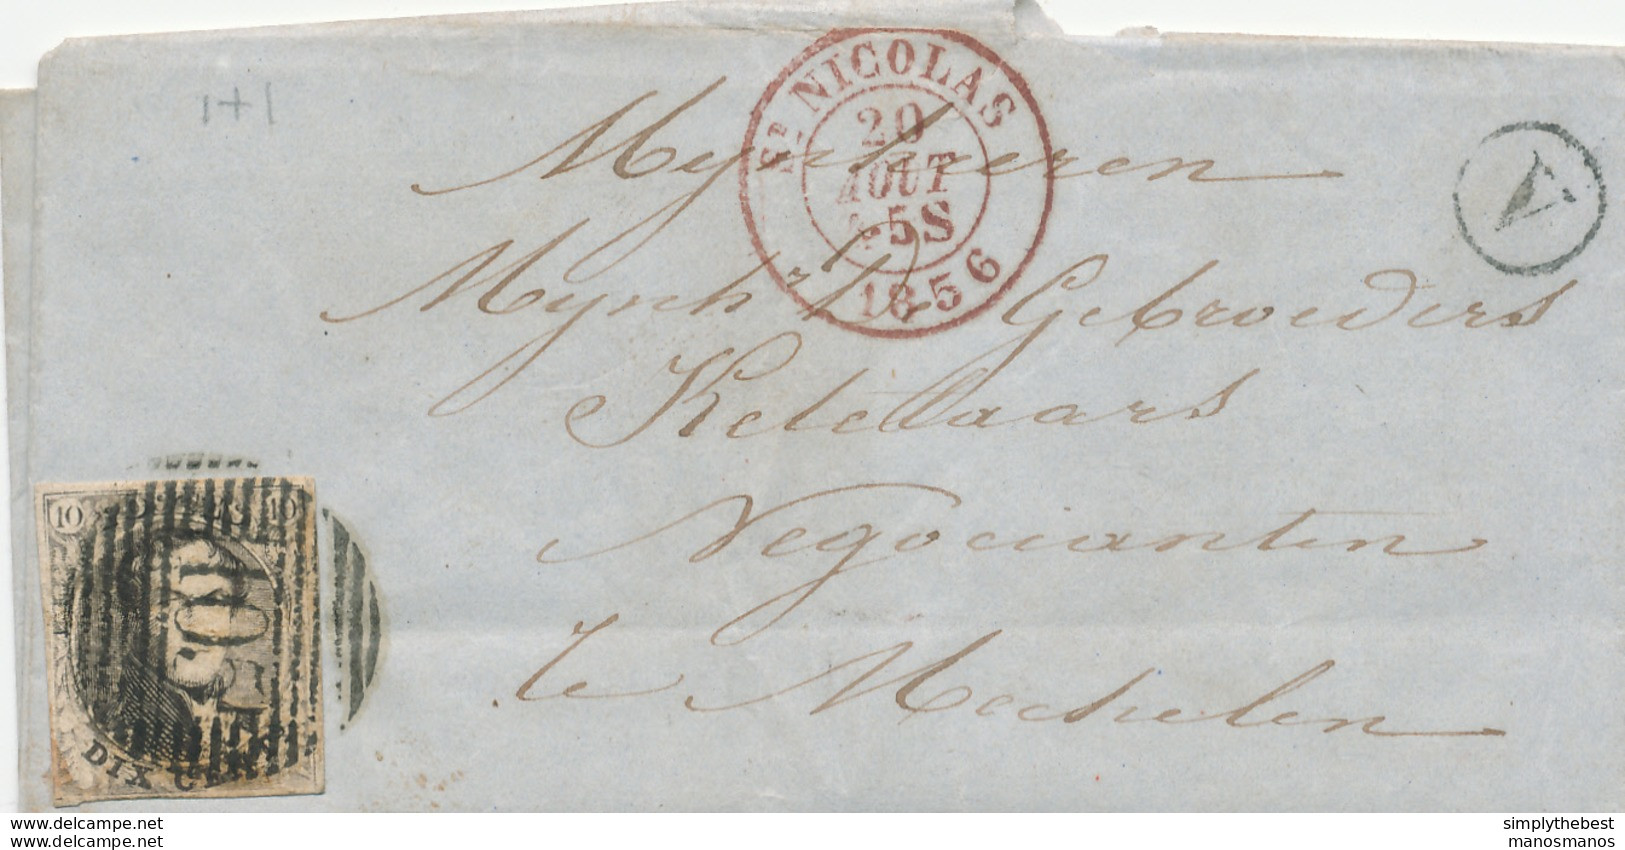 1+1
Sᵗ NICOLAS
20
AOUT
4-5S
1856
A
Mynheeren
Mynhʳⁿ Gebroeders
Ketelaars
Negocianten
te Mechelen
10 10
DIX CENTS
www.delcampe.net
www.delcampe.net
simplythebest
manosmanos